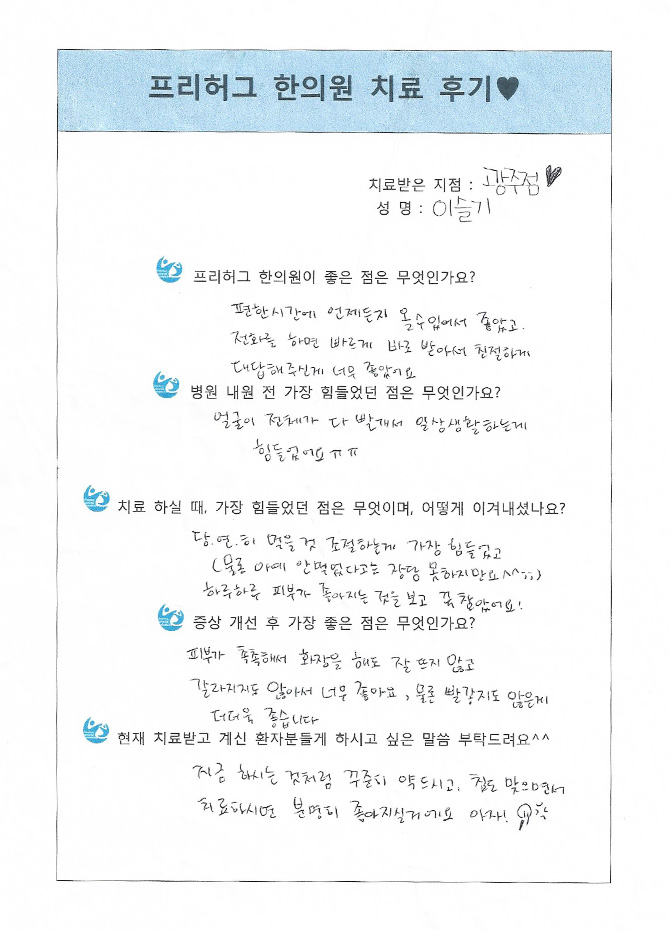 프리허그 한의원 치료 후기♥
치료받은 지점 : 광주점♥
성 명 : 이슬기
프리허그 한의원이 좋은 점은 무엇인가요?
편한시간에 언제든지 올수있어서 좋았고.
전화를 하면 빠르게 바로 받아서 친절하게
대답해주신게 너무 좋았어요
병원 내원 전 가장 힘들었던 점은 무엇인가요?
얼굴이 전체가 다 빨개서 일상생활하는게
힘들었어요ㅠㅠ
치료 하실 때, 가장 힘들었던 점은 무엇이며, 어떻게 이겨내셨나요?
당.연.히 먹을 것 조절하는게 가장 힘들었고
(물론 아예 안먹었다고는 장담 못하지만요^^;;)
하루하루 피부가 좋아지는 것을 보고 꾹 참았어요!
증상 개선 후 가장 좋은 점은 무엇인가요?
피부가 촉촉해서 화장을 해도 잘 뜨지 않고
갈라지지도 않아서 너무 좋아요, 물론 빨갛지도 않은게
더더욱 좋습니다
현재 치료받고 계신 환자분들게 하시고 싶은 말씀 부탁드려요^^
지금 하시는 것처럼 꾸준히 약드시고, 침도 맞으면서
치료하시면 분명히 좋아지실거에요 아자!